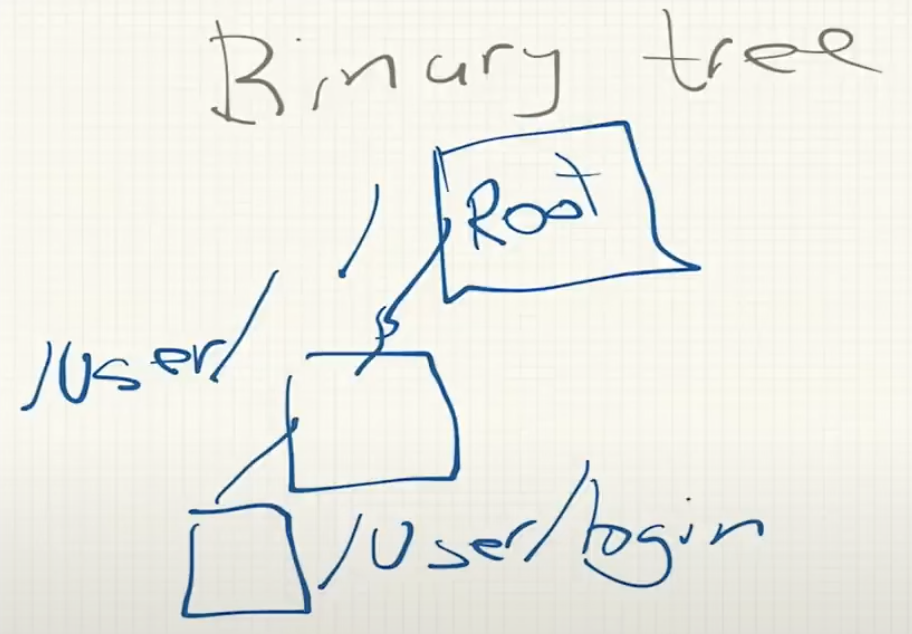 Binary tree
Root
/
/User/
/User/login